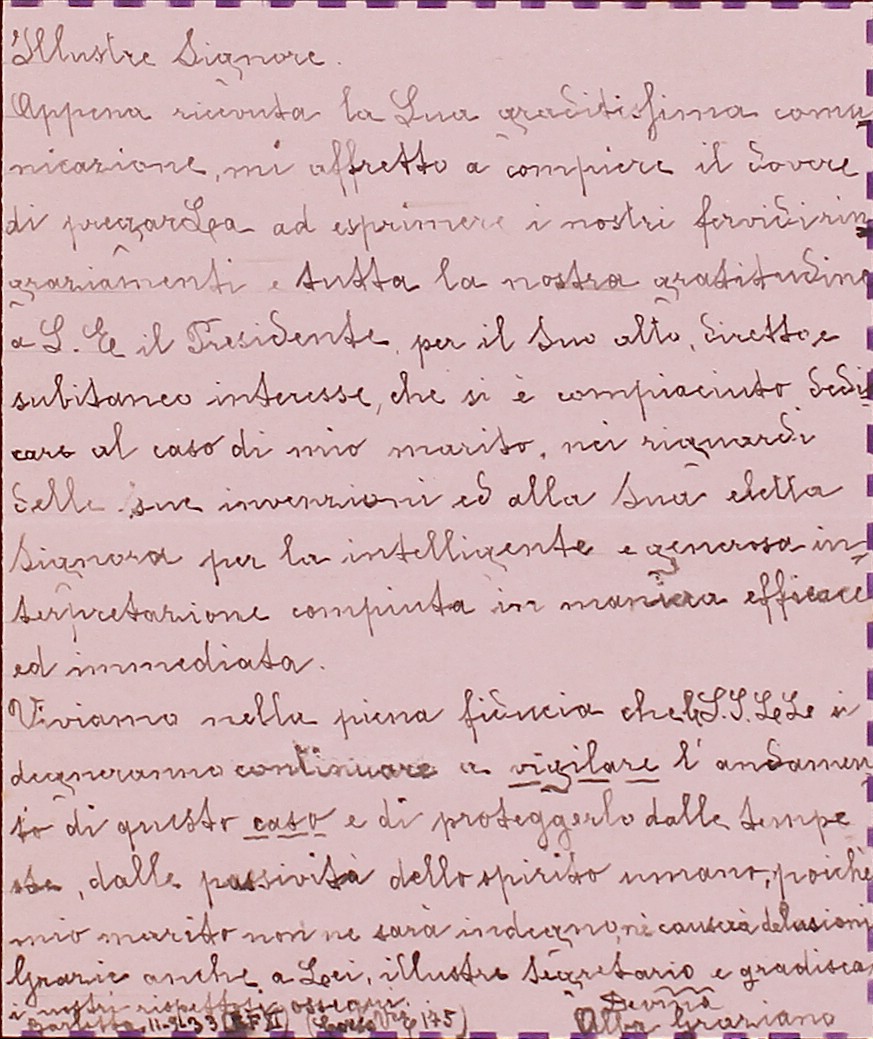 Illustre Signore.
Appena ricevuta la Sua graditissima comu
nicazione, mi affretto a compiere il dovere
di pregarLa ad esprimere i nostri fervidi rin
graziamenti e tutta la nostra gratitudine
a S. E il Presidente, per il Suo alto, diretto e
subitaneo interesse, che si è compiaciuto dedi
care al caso di mio marito, nei riguardi
delle sue invenzioni ed alla Sua eletta
Signora per la intelligente e generosa in-
terpretazione compiuta in maniera efficace
ed immediata.
Viviamo nella piena fiducia che le S.S. LeLe si
degneranno continuare a vigilare l'andamen
to di questo caso e di proteggerlo dalle tempe
ste, dalle passività dello spirito umano, poichè
mio marito non ne sarà indegno, nè causerà delusioni
Grazie anche a Lei, illustre Segretario e gradisca
i nostri rispettosi ossequi. Dev.ma
Barletta, 11-2-33 (Corso 175) Alba Graziano